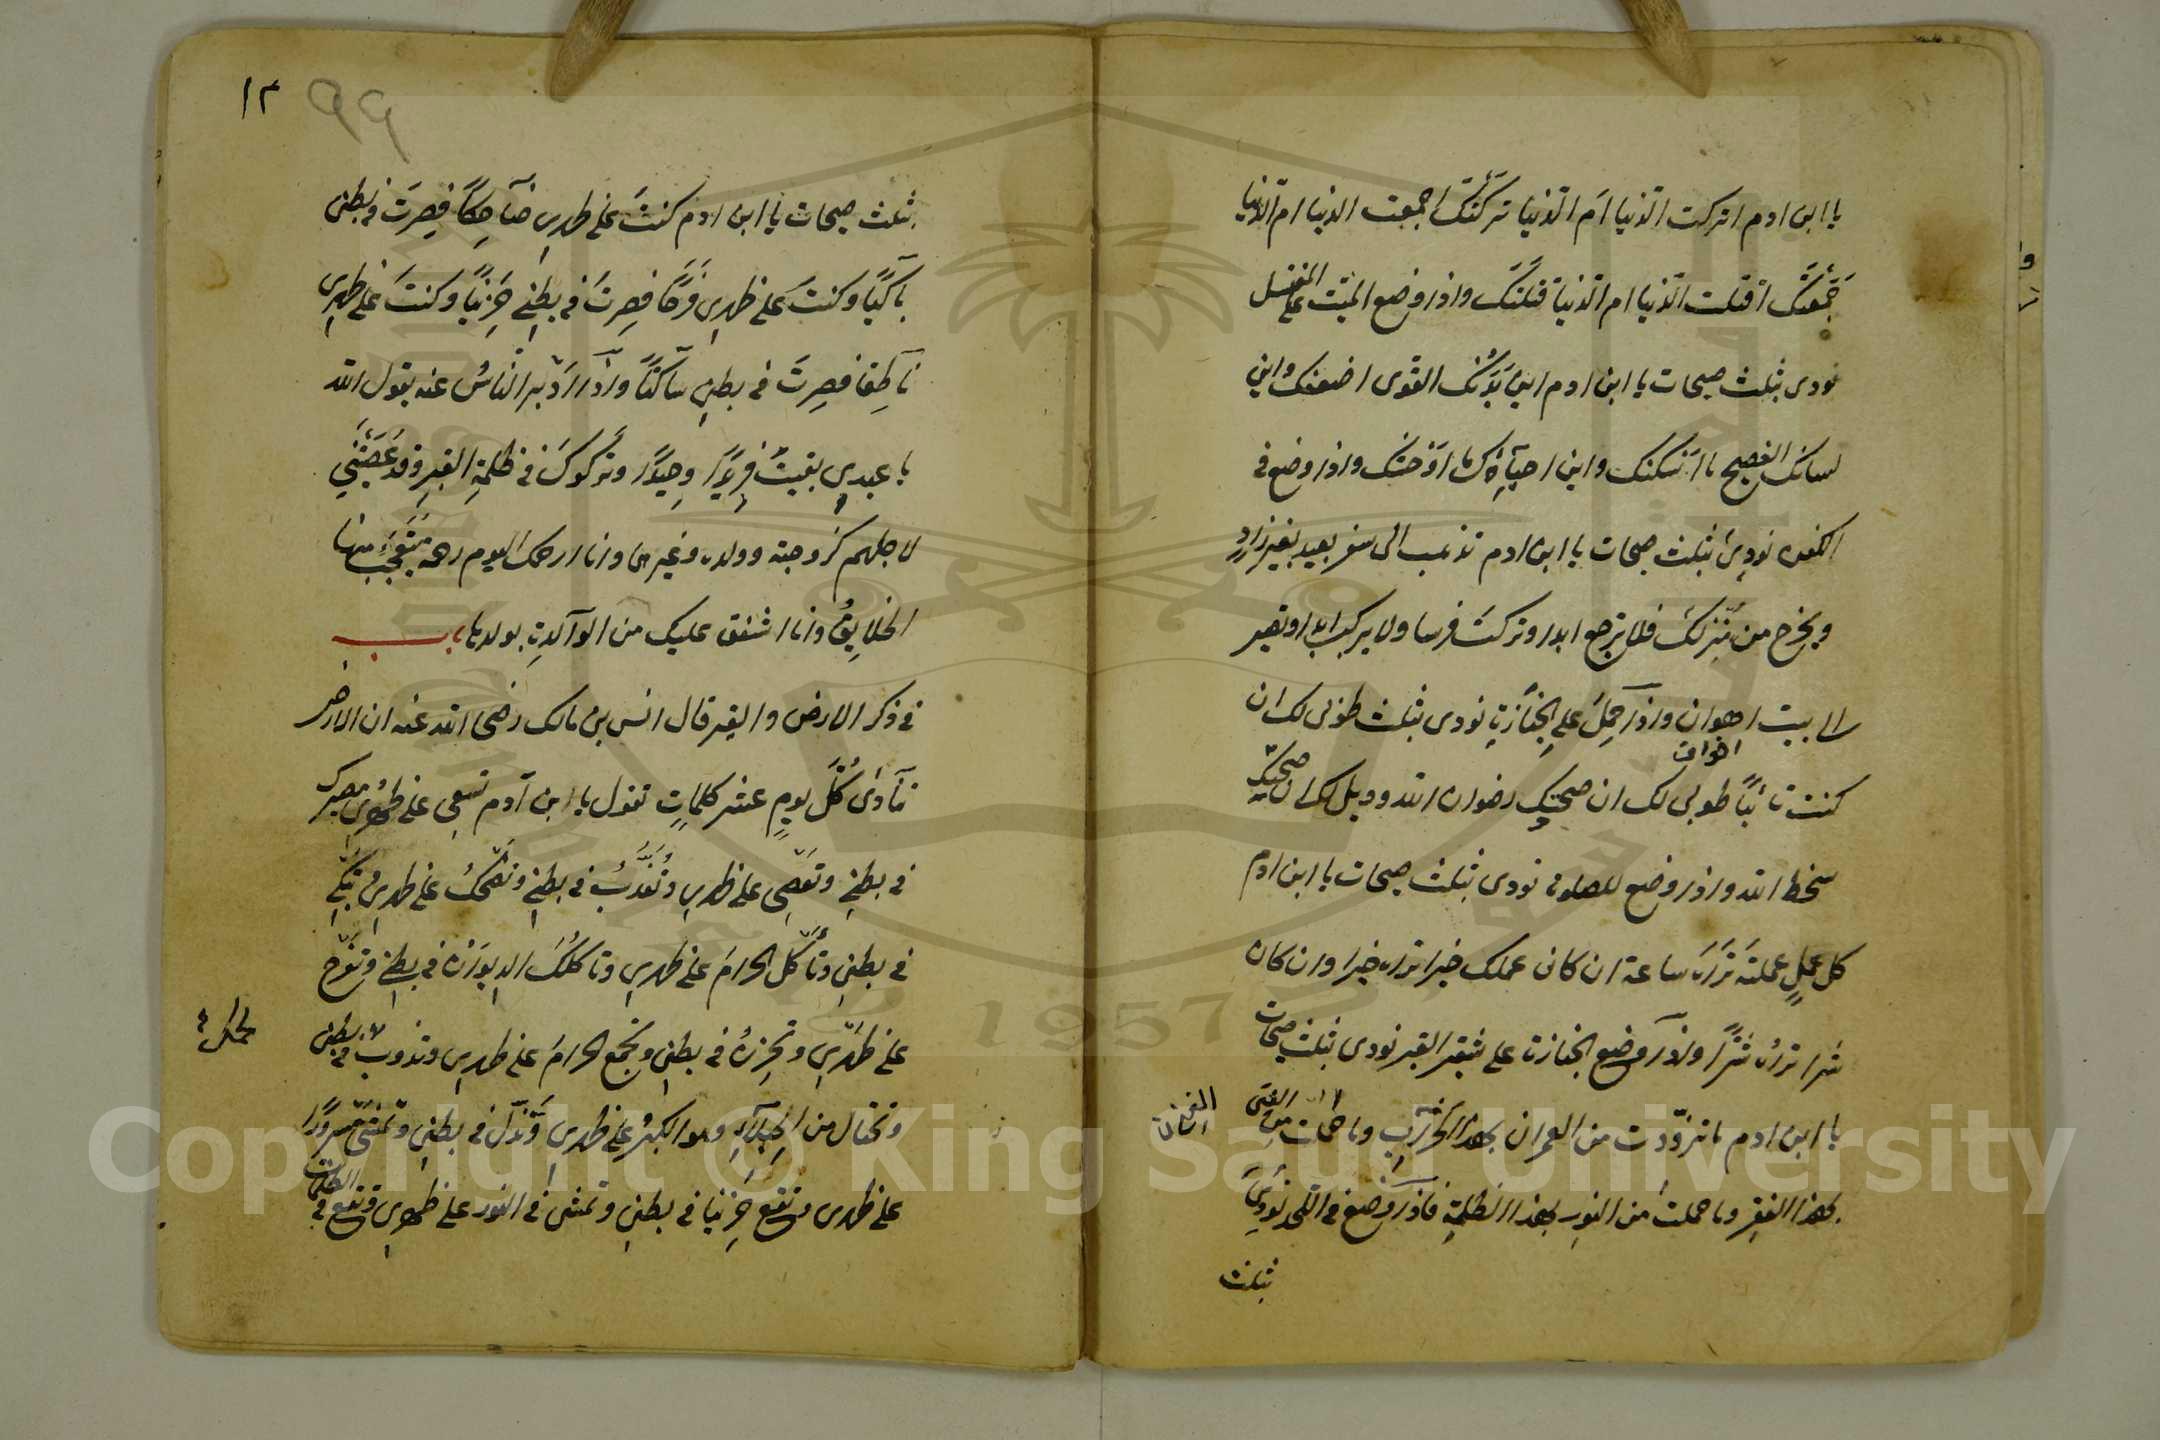 يا ابن ادم اتركت الدّنيا اَم الدّنيا تَرَكَتْكَ اجمعت الدنيا ام الدّنيا
جَمَعَتْكَ اقتلت الدّنيا ام الدّنيا قتَلَتْكَ واذا وضع الميّت على المغتسل
نودى بثلث صيحات يا ابن ادم اين بَدَنُكَ القوى ما اضعفك واين
لسانك الفصيح ما اسكتك واين احبّآؤك ما اوحشك واذا وضع فى
الكفن نودِىَ بثلث صيحات يا ابن ادم تذهب الى سفر بعيد بغير زادٍ
ويخرج من مَنزلك فلا ترجع ابدا وتركبُ فرسا ولا يركب ابدا وتصير
الى بيت اهوان واذا حُمِلَ على الجَنَازَةِ نودى بثلث طوبى لك ان
اخوان
كنت تائباً طوبى لك ان صحبتك رضوان الله وويل لك ان صحبتك
سخط الله واذا وضع للصلوة نودى بثلث صيحات يا ابن ادم
كل عملٍ عملتَه تَرَاهُ ساعة ان كان عملك خيرا تراه خيرا وان كان
شرا تراه شرًّا واذا وضع الجنازة على شفير القبر نودى بثلث صيحات
يا ابن ادم ما تزوّدت من العمران لهذا الخرابِ وما حملت من الغنى
لهذا الفقر وما حملتَ من النور لهذا الظلمةِ فاذا وضع فى اللحد نُودِىَ
بثلث
١٢
99
بثلث صيحات يا ابن ادم كنتَ على ظهرى ضَاحِكاً فصِرتَ فى بطنى
باكيًا وكنتَ على ظهرى فَرِحًا فصِرتَ فى بطنى حَزِينًا وكنتَ على ظهرى
ناطِقا فصِرتَ فى بطنى ساكتًا واذا ادبر النّاسُ عنه يقول الله
يا عبدى بقيتَ فريدًا وحِيدًا وتركوكَ فى ظلمةِ القبرِ وقد عَصَيْتَنِى
لاجلهم كزوجته وولده وغيرها وانا ارحمك اليوم رحمة يَتَعَجَّبُ منها
الخلايقُ وانا اشفق عليك من الوالدةِ بولدها باب
فى ذكر الارض والقبر قال انس بن مالك رضى الله عنه ان الارض
تنادى كُلَّ يومٍ عشر كلماتٍ تقول يا ابن آدم تسعى على ظهرى مصيرك
فى بطنى وتعصِى على ظهرى وتُعَذَّبُ فى بطنى وتضحكُ على ظهرى وتبكى
فى بطنى وتأكل الحرامَ على ظهرى وتاكلك الديدان فى بطنى وتفرح
على ظهرى وتحزنُ فى بطنى وتجمع الحرامَ على ظهرى وتذوب فى بطنى
وتختال من الخيلاءِ وهو الكبرُ على ظهرى وتَذِلّ فى بطنى وتمشى مسرورًا
على ظهرى وتقع حزينا فى بطنى وتمشى فى النور على ظهرى وتقع فى الظلمات
Copyright © King Saud University
1957